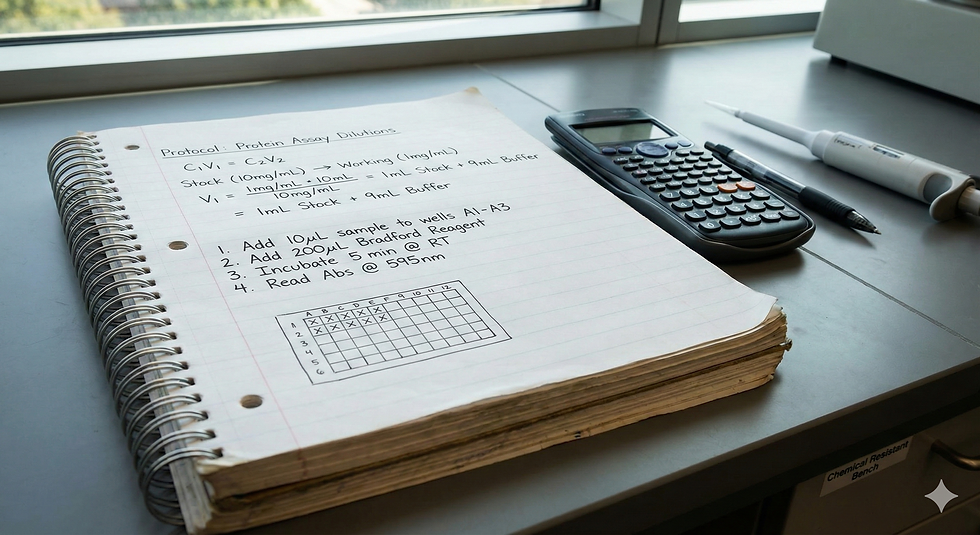 Protocol: Protein Assay Dilutions
C₁V₁ = C₂V₂
Stock (10mg/mL) → Working (1mg/mL)
V₁ = 1mg/mL · 10mL / 10mg/mL = 1mL Stock + 9mL Buffer
= 1mL Stock + 9mL Buffer
1. Add 10μL sample to wells A1-A3
2. Add 200μL Bradford Reagent
3. Incubate 5 min @ RT
4. Read Abs @ 595nm
A B C D E F 9 10 11 12
1 X X X X X X
2 X X X X X X
3
4
5
6
Chemical Resistant
Bench